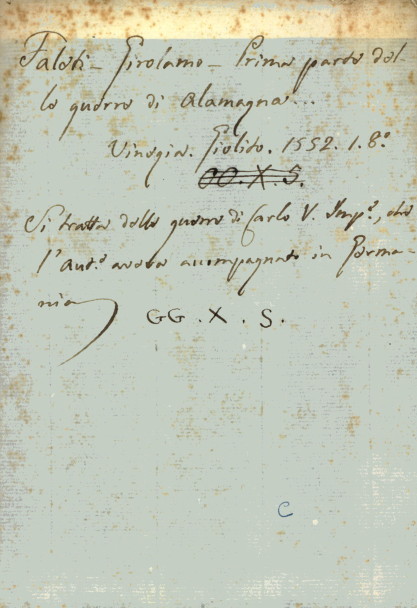 Faleti - Girolamo - Prima parte del-
le guerre di Alamagna...
Vinegia. Giolito. 1552. 1. 8.º
OO. X. S.
Si tratta delle guerre di Carlo V. Imp.e, che
l'aut.e aveva accompagnato in Germa-
nia
GG. X. S.
C